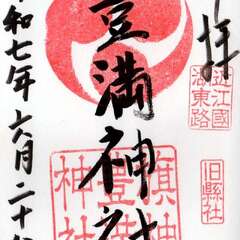 拝
近江國
湖東路
旧縣社
豊満神社
旗神
豊満
神社
和七年六月二十